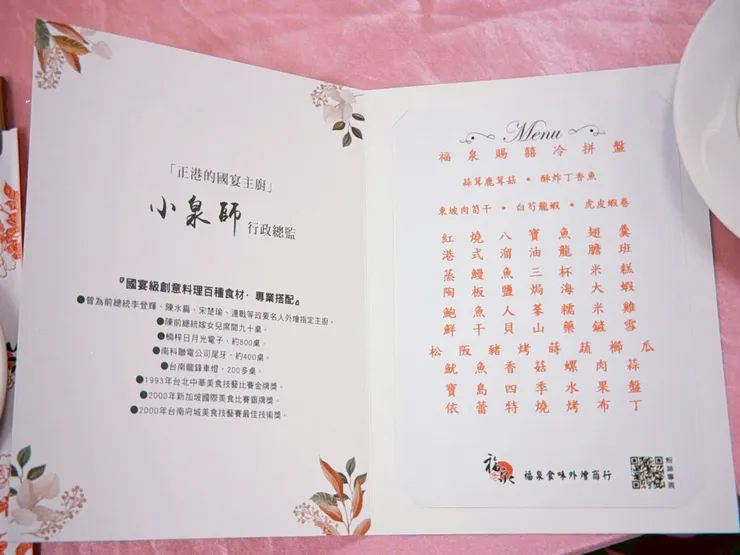 「正港的國宴主廚」
小泉師 行政總監
『國宴級創意料理百種食材．專業搭配』
●曾為前總統李登輝、陳水扁、宋楚瑜、連戰等政要名人外燴指定主廚。
●陳前總統嫁女兒席開九十桌。
●楠梓日月光電子，約800桌。
●南科聯電公司尾牙，約400桌。
●台南龍鋒車燈，200多桌。
●1993年台北中華美食技藝比賽金牌獎。
●2000年新加坡國際美食比賽銀牌獎。
●2000年台南府城美食技藝賽最佳技術獎。
Menu
福泉賜囍冷拼盤
蒜茸鹿茸菇 • 酥炸丁香魚
東坡肉筍干 • 白芍龍蝦 • 虎皮蝦卷
紅燒八寶魚翅羹
港式溜油龍膽班
蒸鰻魚三杯米糕
陶板鹽焗海大蝦
鮑魚人蔘糯米雞
鮮干貝山藥鏟雪
松阪豬烤蒔蔬櫛瓜
魷魚香菇螺肉蒜
寶島四季水果盤
依蕾特燒烤布丁
福泉
福泉食味外燴商行
粉絲專頁